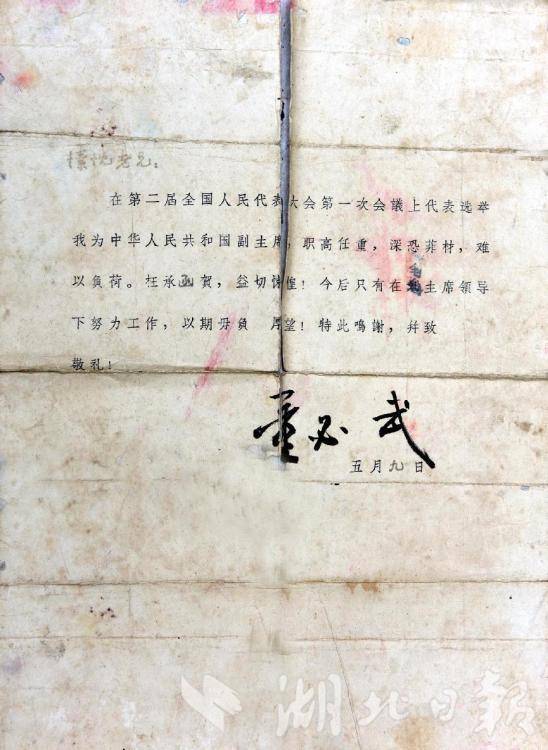 老兄:
在第二届全国人民代表大会第一次会議上代表选举
我为中华人民共和国副主席,职高任重,深恐菲材,难
以負荷。枉承函贺,益切惶!今后只有在主席領导
下努力工作,以期毋負 望!特此鳴謝,幷致
敬礼!
董必武
五月九日
湖北日報